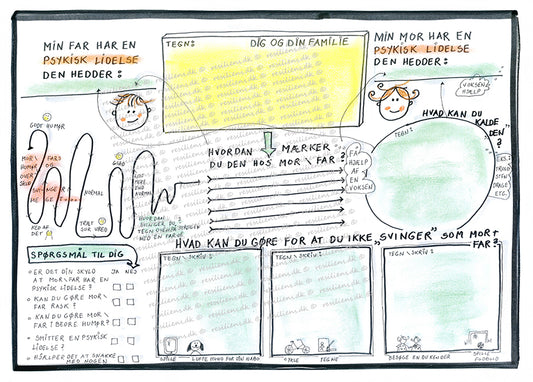 MIN FAR HAR EN
PSYKISK LIDELSE
DEN HEDDER:
TEGN:
DIG OG DIN FAMILIE
MIN MOR HAR EN
PSYKISK LIDELSE
DEN HEDDER:
VOKSEN
HJÆLP
GODT HUMØR
MOR\FARS
HUMØR
OVER
SVINGER
GLAD
NORMAL
KED AF
DET
TRÆT
SUR
HVORDAN
SVINGER DU?
TEGN
HVORDAN MÆRKER
DU DEN HOS MOR\FAR?
FÅ
HJÆLP
AF
EN
VOKSEN
HVAD KAN DU
KALDE
DEN?
TEGN:
EKS.:
ETC.
SPØRGSMÅL TIL DIG
JA NEJ
ER DET DIN SKYLD
AT MOR\FAR HAR EN
PSYKISK LIDELSE?
KAN DU GØRE MOR\
FAR RASK?
KAN DU GØRE MOR\
FAR I BEDRE HUMØR?
SMITTER EN PSYKISK
LIDELSE?
HJÆLPER DET AT SNAKKE
MED NOGEN
HVAD KAN DU GØRE FOR AT DU IKKE "SVINGER" SOM MOR\
FAR?
TEGN\SKRIV:
TEGN\SKRIV:
TEGN\SKRIV:
SPILLE
LUFTE HUND FOR DIN NABO
CYKLE
TEGNE
BESØGE EN DU KENDER
SPILLE
FODBOLD
resiliens.dk ©